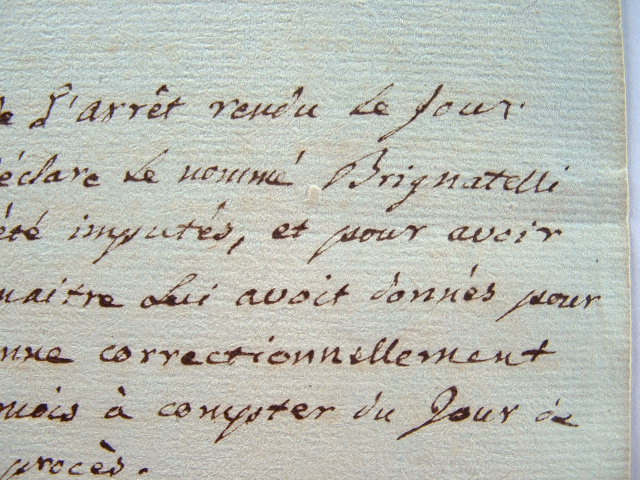 de L'arrêt rendu le Jour
déclare le nommé Brignatelli
été imputés, et pour avoir
maitre lui avoit donnés pour
nne correctionnellement
mois à compter du Jour de
procès.